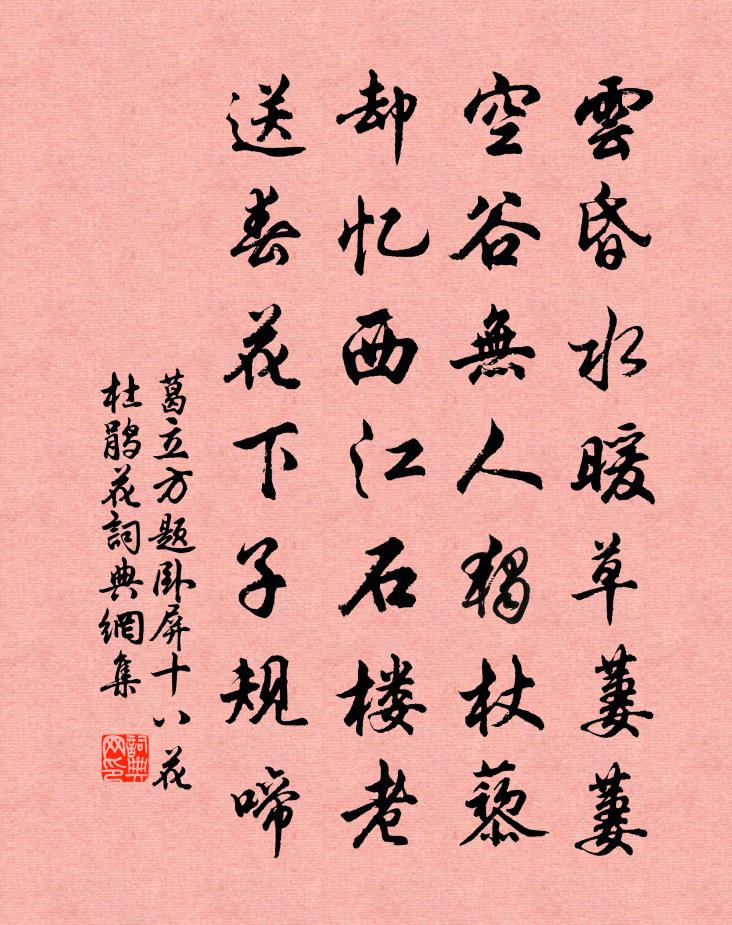 雲昏水暖草萋萋
空谷無人獨杖藜
却忆西江石楼老
送春花下子規啼
葛立方题卧屏十八花
杜鹃花詞典網集
詞典
网印